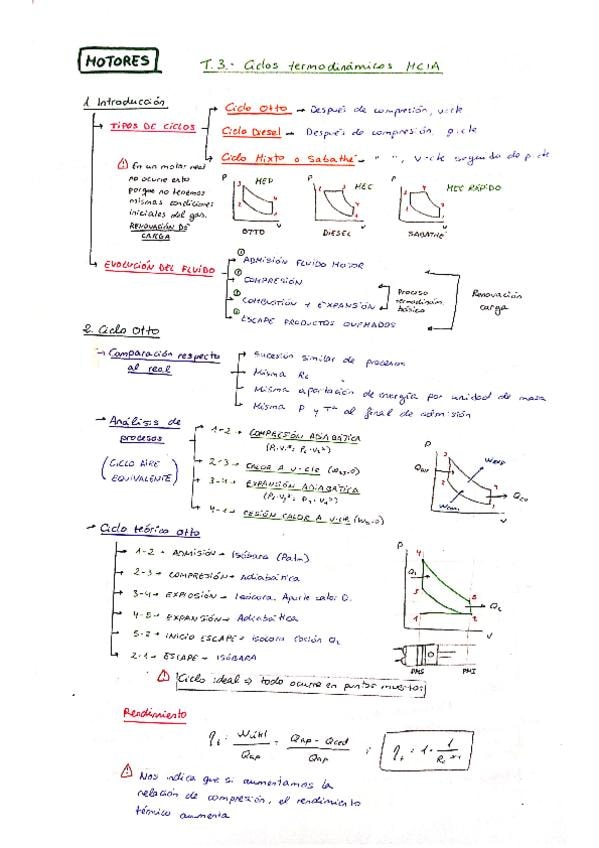 MOTORES
T.3.- Ciclos termodinámicos MCIA
1. Introducción
TIPOS DE CICLOS
Ciclo Otto → Después de compresión, v=cte
Ciclo Diesel → Después de compresión, p=cte
Ciclo Mixto o Sabathé → " ", v=cte seguido de p=cte
En un motor real
no ocurre esto
porque no tenemos
mismas condiciones
iniciales del gas.
RENOVACIÓN DE
CARGA
P
3
2
4
1
MEP
V
OTTO
P
2
3
4
1
MEC
V
DIESEL
P
MEC RÁPIDO
V
SABATHÉ
EVOLUCIÓN DEL FLUIDO
① ADMISIÓN FLUIDO MOTOR
COMPRESIÓN
COMBUSTIÓN + EXPANSIÓN
ESCAPE PRODUCTOS QUEMADOS
Proceso
termodinám.
básico
Renovación
carga
2. Ciclo Otto
Comparación respecto
al real
Sucesión similar de procesos
Misma Rc
Misma aportación de energía por unidad de masa
Misma P y Tª al final de admisión
Análisis de
procesos
(CICLO AIRE
EQUIVALENTE)
1-2 → COMPRESIÓN ADIABÁTICA
2-3 → CALOR A V=cte
3-4 → EXPANSIÓN ADIABÁTICA
4-1 → CESIÓN CALOR A V=cte
P
Qap
Wexp
Wcom
Qced
V
Ciclo teórico Otto
1-2 → ADMISIÓN → Isóbara (Patm)
2-3 → COMPRESIÓN → Adiabática
3-4 → EXPLOSIÓN → Isócora. Aporte calor Q.
4-5 → EXPANSIÓN → Adiabática
5-2 → INICIO ESCAPE → Isócora
2-1 → ESCAPE → ISÓBARA
P
4
Q1
3
5
Q2
1
2
V
PMS
PMI
Ciclo ideal ⇒ todo ocurre en puntos muertos
Rendimiento
ηt = Wútil / Qap = Qap - Qced / Qap ; ηt = 1 - 1 / Rc^γ-1
Nos indica que si aumentamos la
relación de compresión, el rendimiento
térmico aumenta